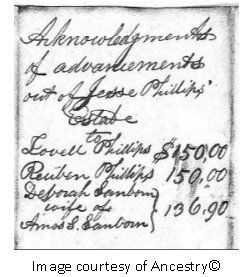 Acknowledgments
of advancements
out of Jesse Phillips'
Estate
to
Lovell Phillips $150,00
Reuben Phillips 150,00
Deborah Sanborn
wife of } 136.90
Amos S. Sanborn
Image courtesy of Ancestry©